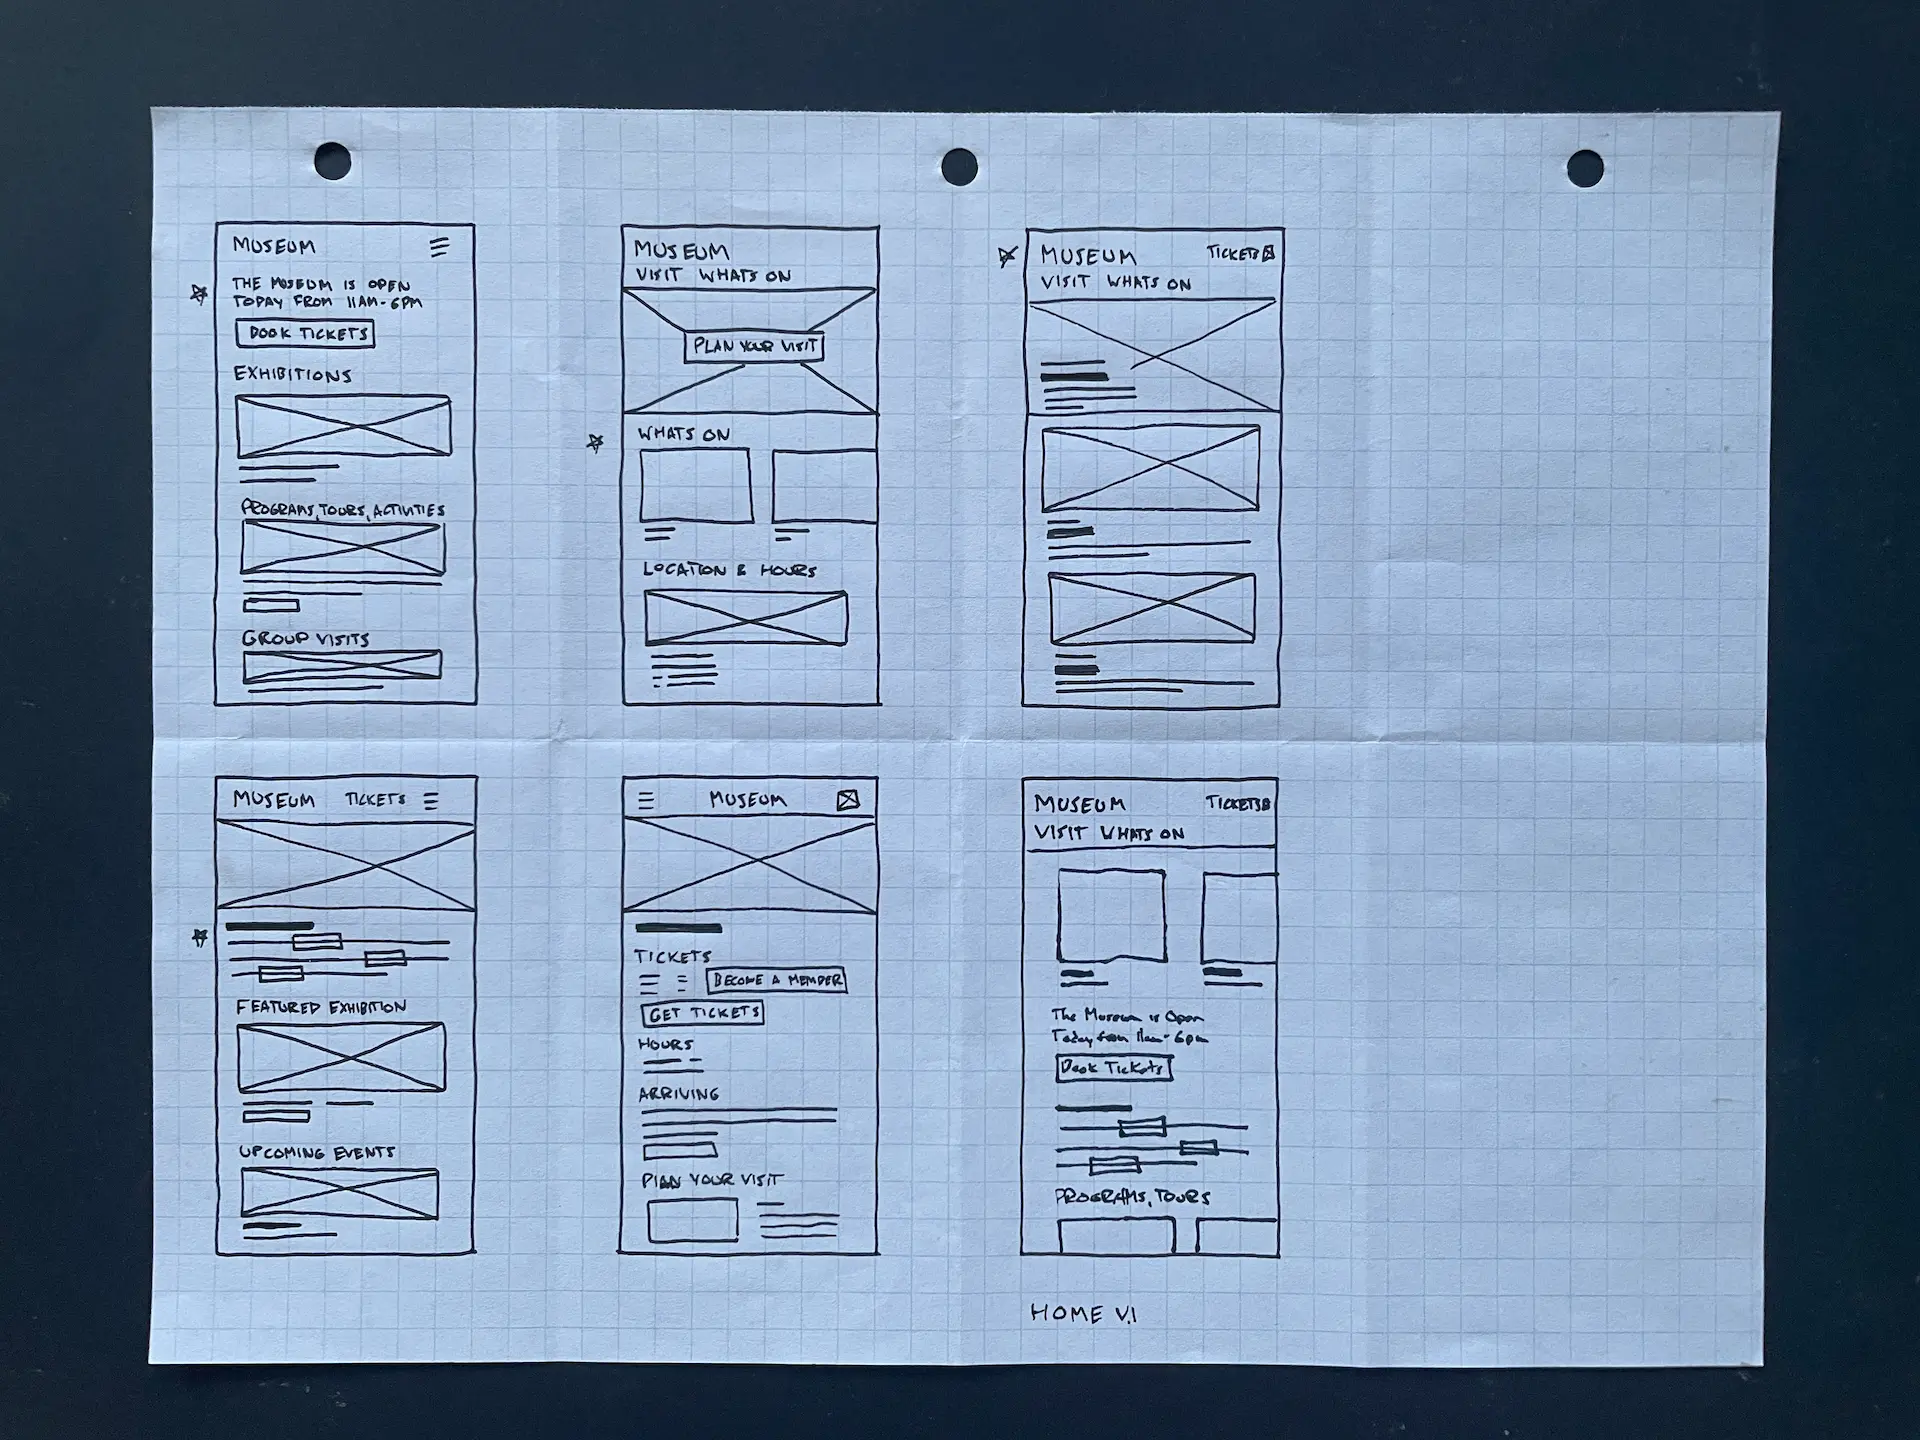 MUSEUM
THE MUSEUM IS OPEN
TODAY FROM 11AM-6PM
BOOK TICKETS
EXHIBITIONS
PROGRAMS, TOURS, ACTIVITIES
GROUP VISITS
MUSEUM
VISIT WHATS ON
PLAN YOUR VISIT
WHATS ON
LOCATION & HOURS
MUSEUM TICKETS
VISIT WHATS ON
MUSEUM TICKETS
FEATURED EXHIBITION
UPCOMING EVENTS
MUSEUM
TICKETS
BECOME A MEMBER
GET TICKETS
HOURS
ARRIVING
PLAN YOUR VISIT
MUSEUM TICKETS
VISIT WHATS ON
The Museum is Open
Today from 11am-6pm
Book Tickets
PROGRAMS, TOURS
HOME V.1